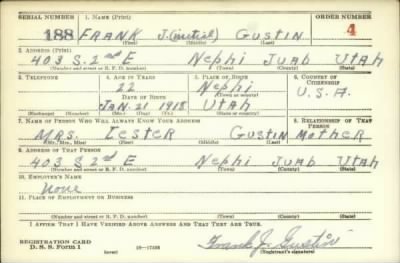 SERIAL NUMBER 1. NAME (Print) ORDER NUMBER
188 FRANK J.(initial) GUSTIN 4
(First) (Middle) (Last)
2. ADDRESS (Print)
403 S. 2nd E Nephi Juab Utah
(Number and street or R. F. D. number) (Town) (County) (State)
3. TELEPHONE 4. AGE IN YEARS 5. PLACE OF BIRTH 6. COUNTRY OF CITIZENSHIP
22 Nephi
DATE OF BIRTH (Town or county) U.S.A.
JAN. 21 1918 Utah
(Exchange) (Number) (Mo.) (Day) (Yr.) (State or country)
7. NAME OF PERSON WHO WILL ALWAYS KNOW YOUR ADDRESS 8. RELATIONSHIP OF THAT PERSON
MRS. LESTER GUSTIN Mother
(Mr., Mrs., Miss) (First) (Middle) (Last)
9. ADDRESS OF THAT PERSON
403 S 2nd E Nephi Juab Utah
(Number and street or R. F. D. number) (Town) (County) (State)
10. EMPLOYER'S NAME
None
11. PLACE OF EMPLOYMENT OR BUSINESS
(Number and street or R. F. D. number) (Town) (County) (State)
I AFFIRM THAT I HAVE VERIFIED ABOVE ANSWERS AND THAT THEY ARE TRUE.
REGISTRATION CARD
D. S. S. Form 1 (over) 16—17105 Frank J. Gustin
(Registrant's signature)